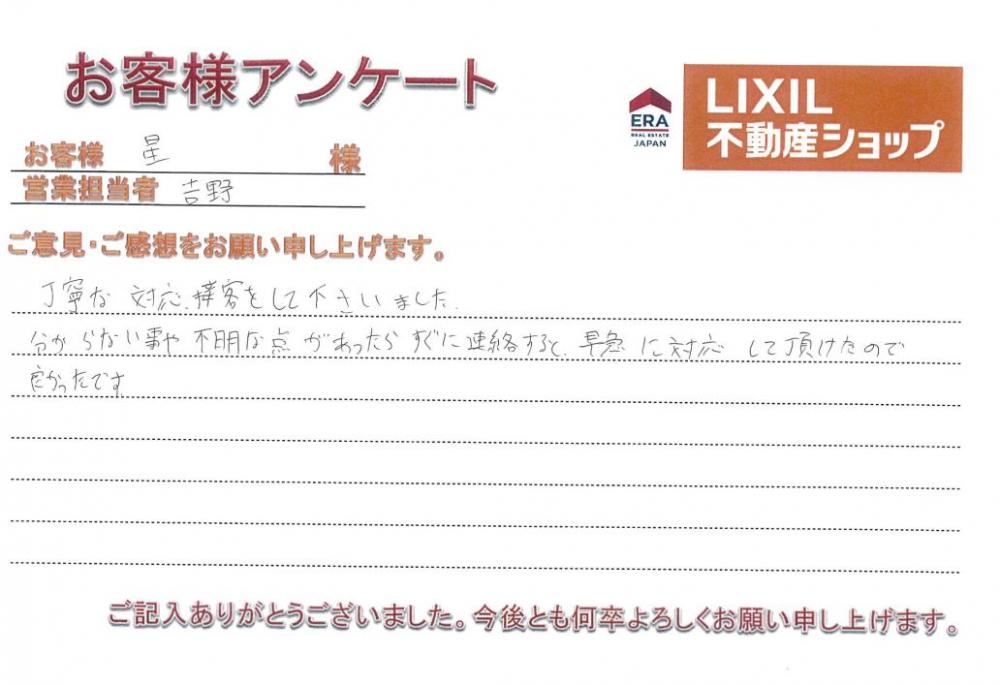 お客様アンケート
ERA
REAL ESTATE
JAPAN
LIXIL
不動産ショップ
お客様 星 様
営業担当者 吉野
ご意見・ご感想をお願い申し上げます。
丁寧な対応、接客をして下さいました。
分からない事や不明な点があったらすぐに連絡すると、早急に対応して頂けたので
良かったです。
ご記入ありがとうございました。今後とも何卒よろしくお願い申し上げます。